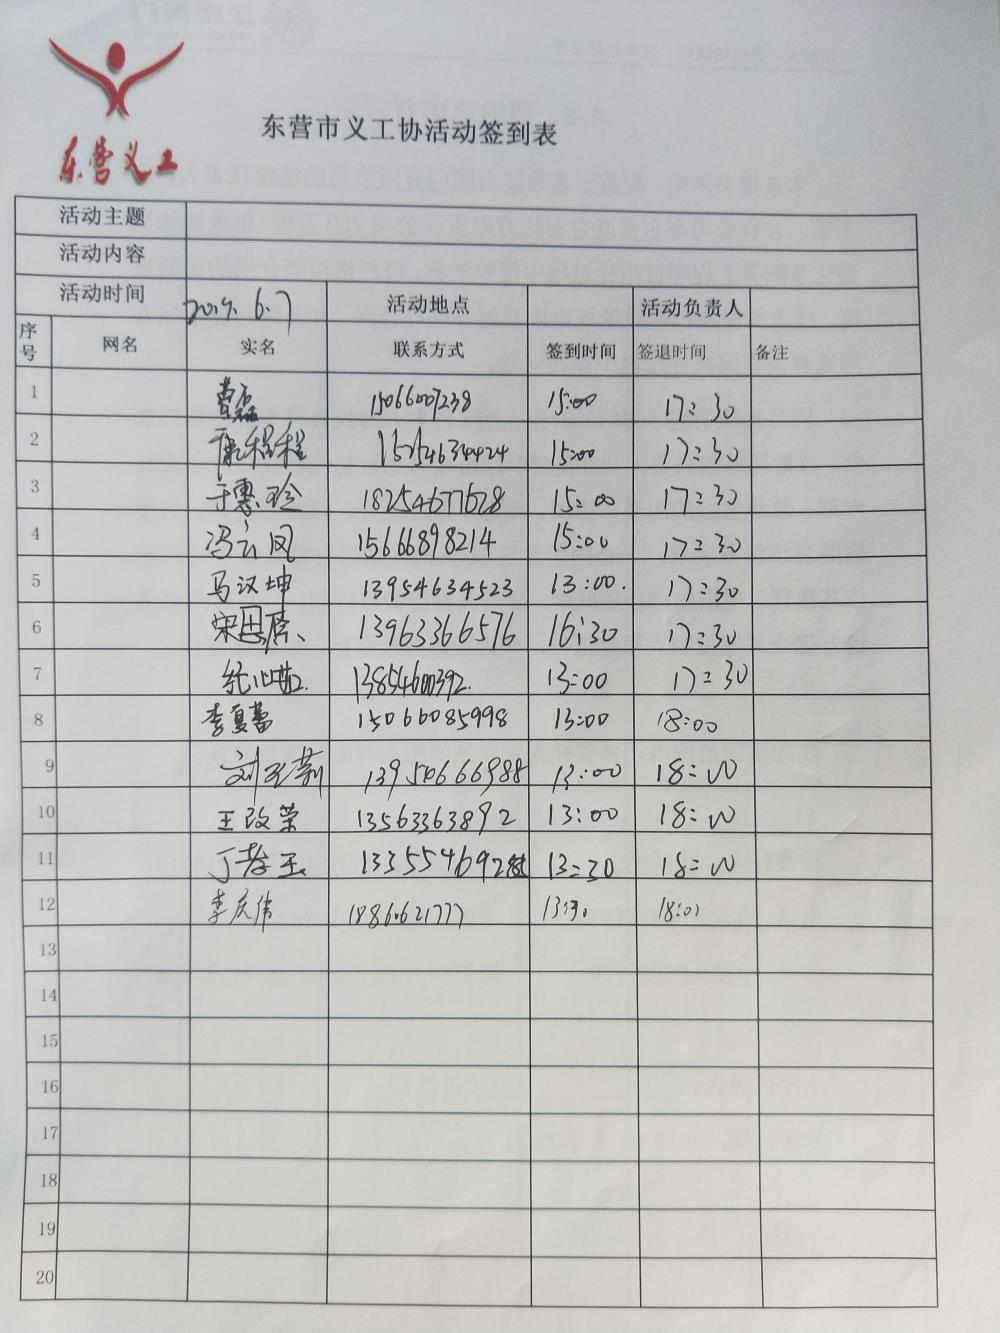 东营义工
东营市义工协活动签到表
活动主题
活动内容
活动时间 2019.6.7 活动地点 活动负责人
序号 网名 实名 联系方式 签到时间 签退时间 备注
1 曹磊 15066007238 15:00 17:30
2 程程 15:00 17:30
3 于惠玲 18254677628 15:00 17:30
4 冯云凤 15666898214 15:00 17:30
5 马汉坤 13954634523 13:00. 17:30
6 宋 13963366576 16:30 17:30
7 13854600392. 13:00 17:30
8 李夏蕾 15066085998 13:00 18:00
9 刘玉 13950666988 13:00 18:00
10 王改荣 13563363892 13:00 18:00
11 丁孝玉 13:30 18:00
12 李庆伟 18860621777 13:30 18:01
13
14
15
16
17
18
19
20